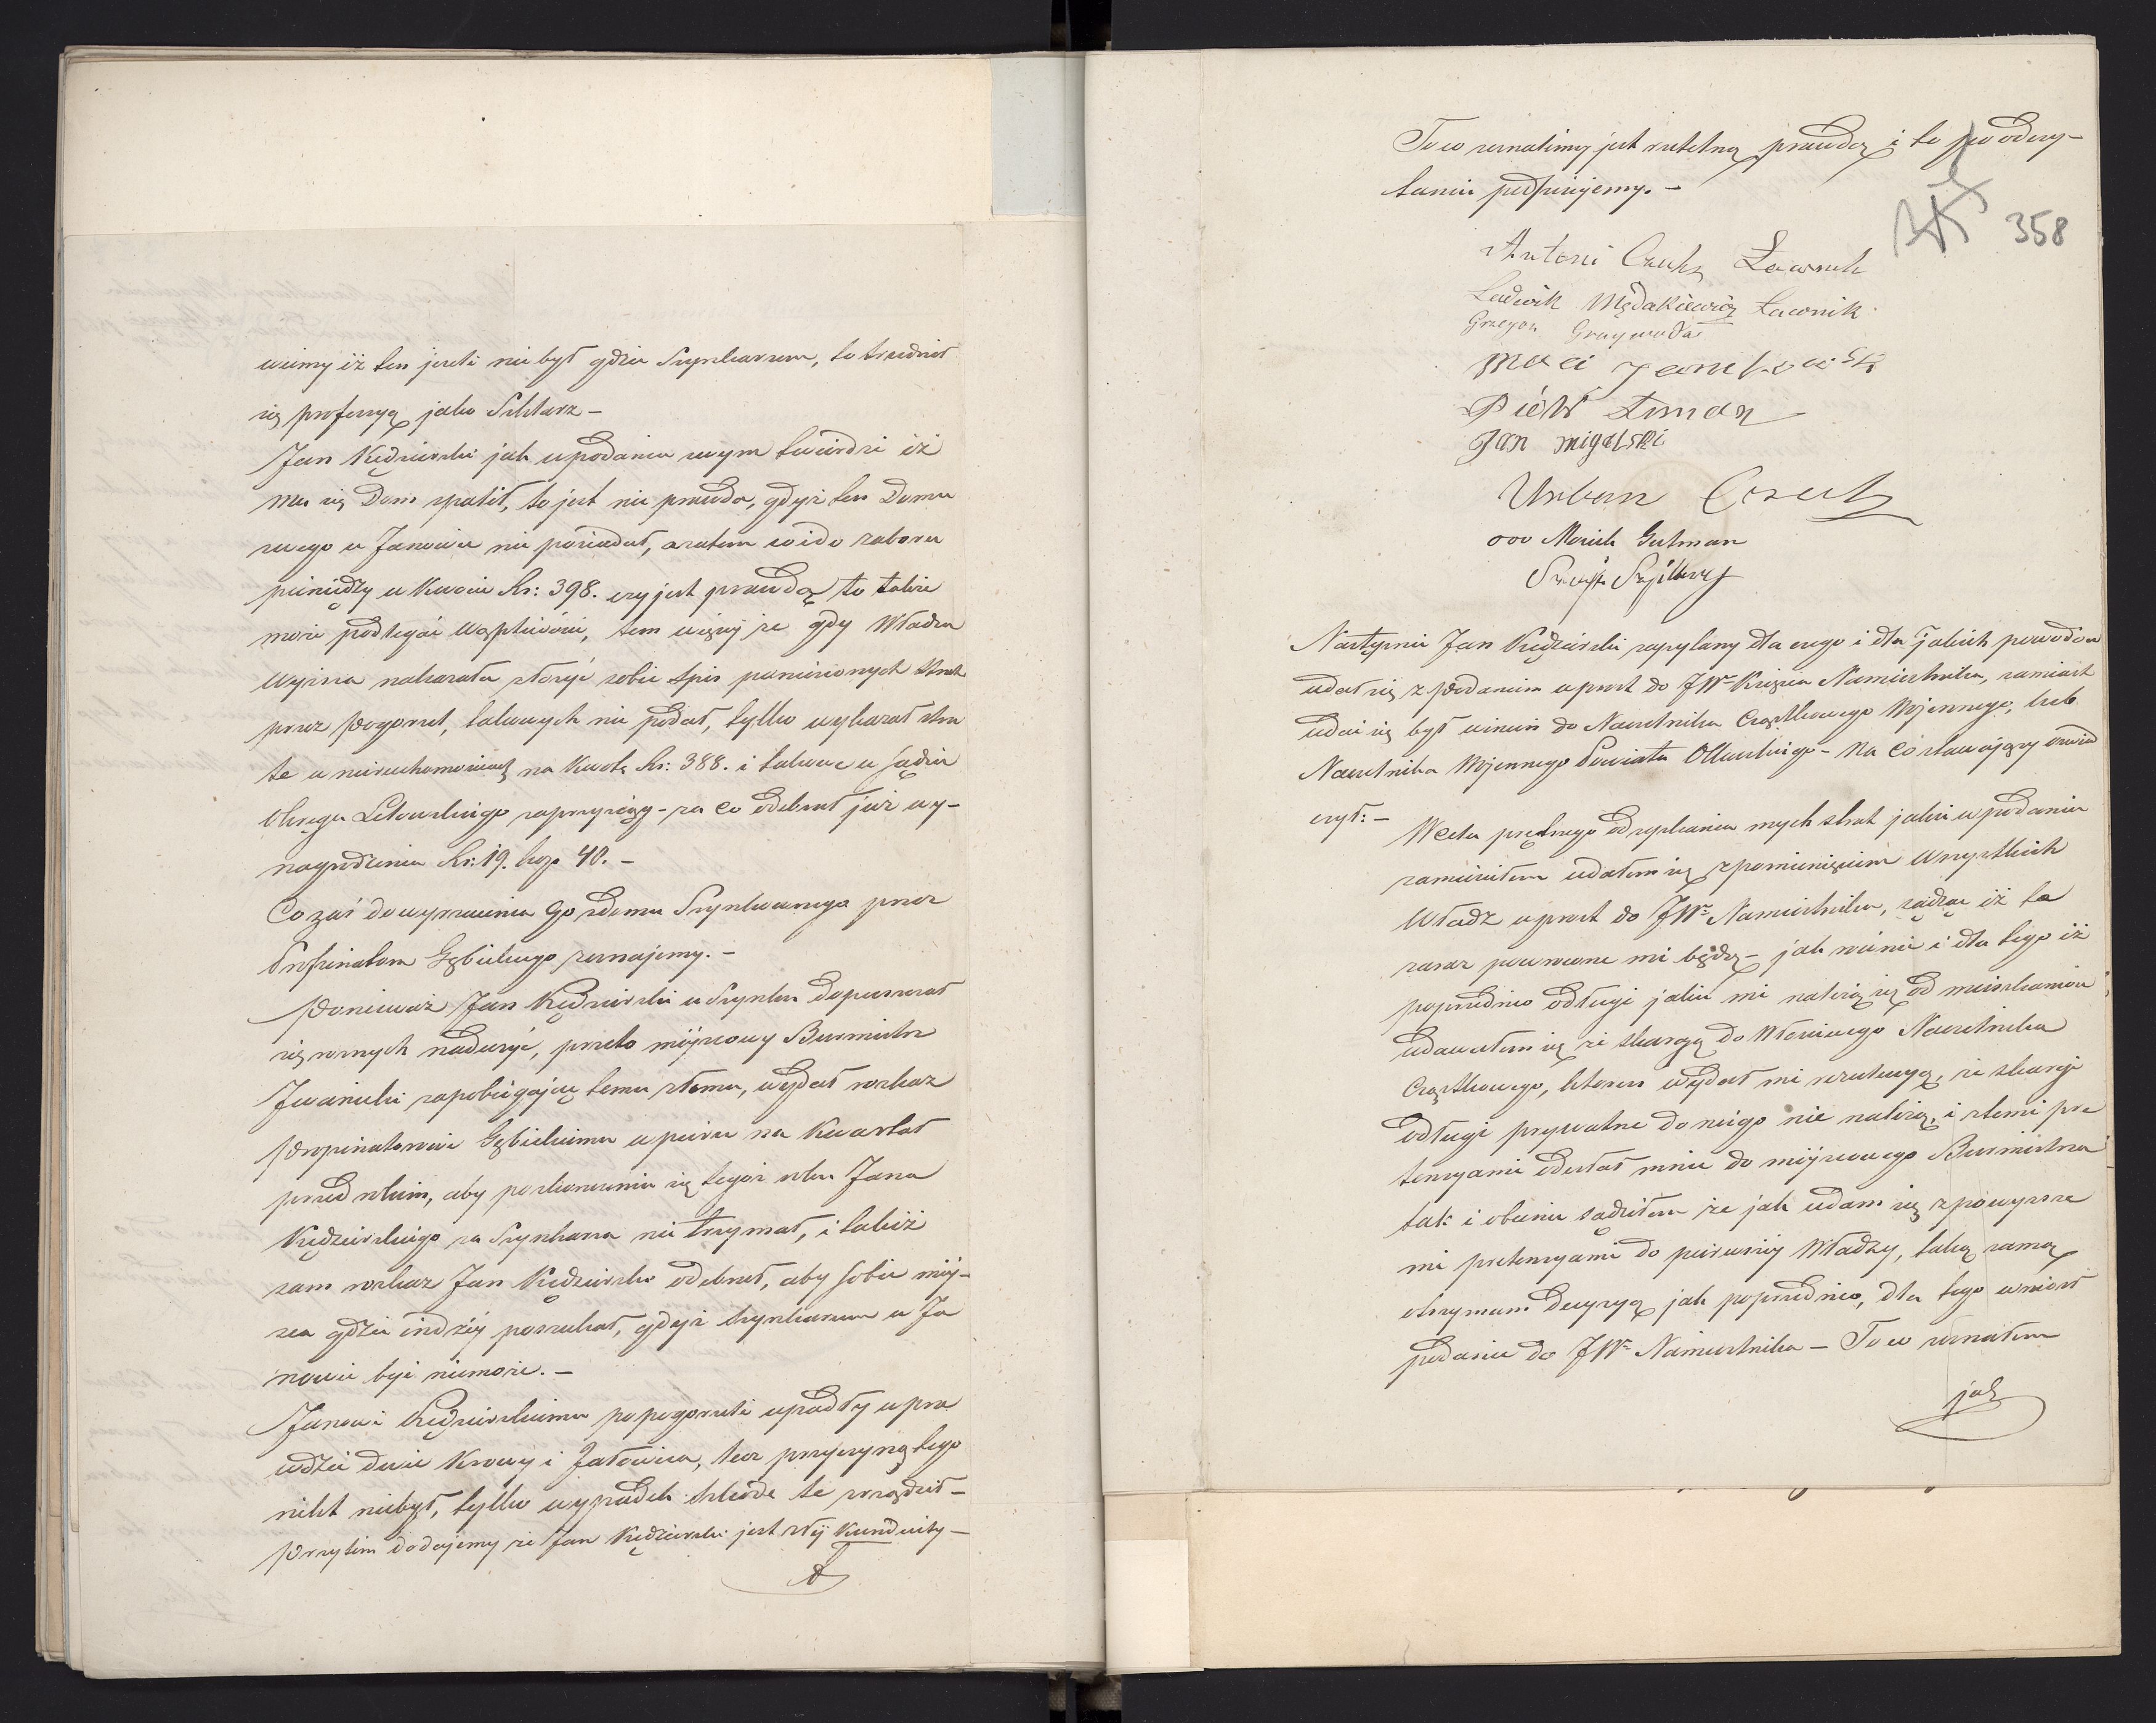 wimy iż ten jeżeli nie był gdzie Szynkarzem, to trudnił
się professyą jako Szklarz –
Jan Kędzierski jak w podaniu swym twierdzi iż
mu się Dom spalił, to jest nie prawda, gdyż ten Domu
swego w Janowie nie posiadał, a zatem co i do zaboru
pieniędzy w Kwocie Rs: 398. czy jest prawdą to także
może podlegać wątpliwości, tem więcej że gdy Władza
Wyższa nakazała złożyć sobie spis poniesionych strat
przez Pogorzel, takowych nie podał, tylko wykazał stra
te w nieruchomościach na kwotę Rs: 388. i takowe w sądzie
Okręgu Lelowskiego zaprzysiągł – za co odebrał już wy-
nagrodzenia Rs: 19. kop 40. –
Co zaś do wyrzucenia Go z domu Szynkownego przez
Propinatora Gębickiego zeznajemy. –
Ponieważ Jan Kędzierski w Szynku dopuszczał
się rożnych nadużyć, przeto miejscowy Burmistrz
Iwanicki zapobiegając temu złemu, wydał rozkaz
Propinatorowi Gębickiemu w piśmie na Kwartał
przed rokiem, aby po skończeniu się tegoż roku Jana
Kędzierskiego za Szynkarza nie trzymał, i takiż
sam rozkaz Jan Kędzierski odebrał, aby sobie miej-
sca gdzie indziej poszukał, gdyż szynkarzem w Ja
nowie być niemoże. –
Janowi Kędzierskiemu po pogorzeli upadły w pra
wdzie dwie Krowy i Jałowica, lecz przyczyną tego
nikt niebył, tylko wypadek szkodę tę zrządził –
Przytem dodajemy że Jan Kędzierski jest złej Konduity –
To co zeznaliśmy jest rzetelną prawdą i to po odczy-
taniu podpisujemy. –
358
Antoni Czech Ławnik
Ludwik Mędakiewicz Ławnik
Grzegorz
Jan Migalski
Urban
ooo Gutman
Następnie Jan Kędzierski zapytany dla czego i dla jakich powodów
udał się z podaniem wprost do JWo Księcia Namiestnika, zamiast
udać się był winien do Naczelnika Cząstkowego Wojennego, lub
Naczelnika Wojennego Powiatu Olkuskiego – Na co stawający oświad
czył: –
W celu prędszego odzyskania mych strat jakie w podaniu
zamieściłem udałem się z pominięciem wszystkich
Władz wprost do JWo Namiestnika, sądząc iż ta
zaraz powrocone mi będą – jak rónie i dla tego iż
poprzednio o długi jakie mi należą się od mieszkańców
udawałem się ze skargą do Właściwego Naczelnika
Cząstkowego, któren wydał mi rezolucyą, że skargi
o długi prywatne do niego nie należą, i z temi pre
tensyami odesłał mnie do miejscowego Burmistrza
tak i obecnie sądziłem że jak udam się z powyższe
mi pretensyami do pierwszej Władzy, taką samą
otrzymam decyzyą jak poprzednio, dla tego wniosł
podanie do JWo Namiestnika – To co zeznałem
jak